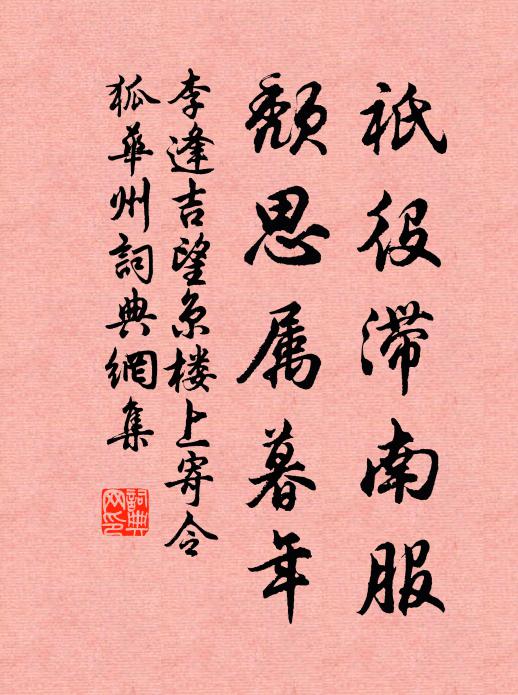 祇役滞南服
颓思属暮年
李逢吉望京楼上寄令
狐华州詞典網集
詞典
网印